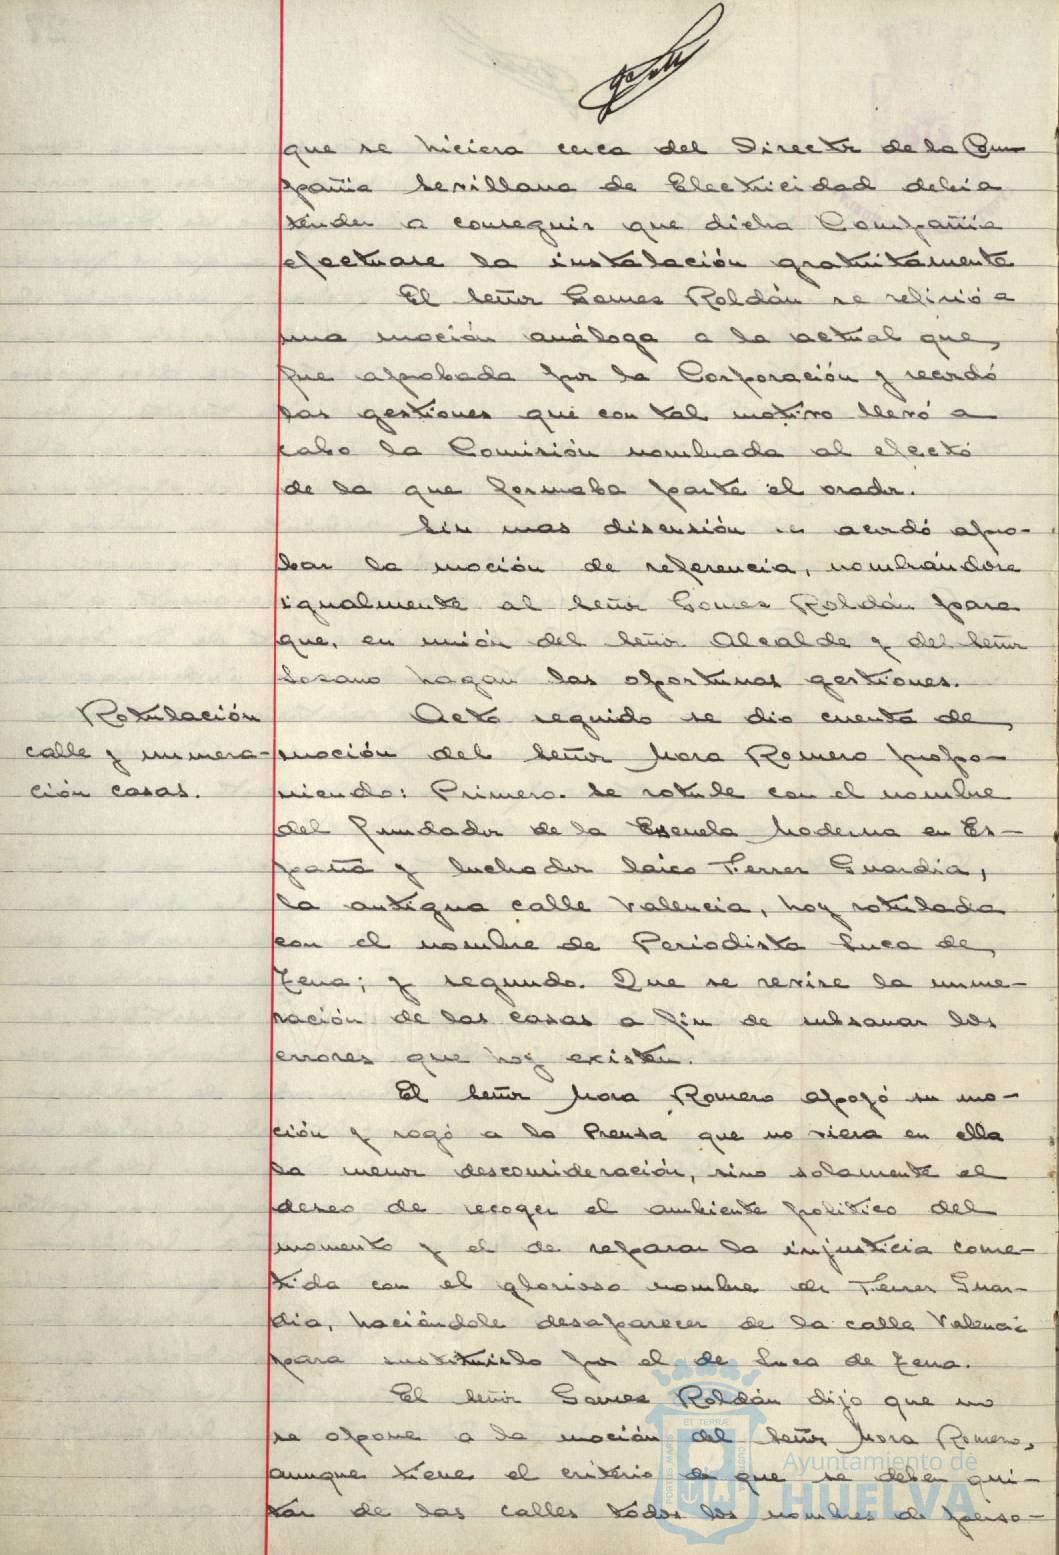 que se hiciera cerca del Director de la Com-
pañia Sevillana de Electricidad debia
tender a conseguir que dicha Compañia
efectuase la instalación gratuitamente
El Señor Gomez Roldán se refirió a
una moción análoga a la actual que
fue aprobada por la Corporación y recordó
las gestiones que con tal motivo llevó a
cabo la Comisión nombrada al efecto
de la que formaba parte el orador.
Sin mas discusión se acordó apro-
bar la moción de referencia, nombrándose
igualmente al Señor Gomez Roldán para
que, en unión del Señor Alcalde y del Señor
Lozano hagan las oportunas gestiones.
Rotulación
calle y numera-
ción casas.
Acto seguido se dio cuenta de
moción del Señor Mora Romero propo-
niendo: Primero. Se rotule con el nombre
del fundador de la Escuela Moderna en Es-
paña y luchador laico Ferrer Guardia,
la antigua calle Valencia, hoy rotulada
con el nombre de Periodista Luca de
Tena; y segundo. Que se revise la nume-
ración de las casas a fin de subsanar los
errores que hoy existen.
El Señor Mora Romero apoyó su mo-
ción y rogó a la Prensa que no viera en ella
la menor desconsideración, sino solamente el
deseo de recoger el ambiente politico del
momento y el de reparar la injusticia come-
tida con el glorioso nombre de Ferrer Guar-
dia, haciéndole desaparecer de la calle Valencia
para sustituirlo por el de Luca de Tena.
El Señor Gomez Roldán dijo que no
se opone a la moción del Señor Mora Romero,
aunque tiene el criterio de que se deben qui-
tar de las calles todos los nombres de perso-
Ayuntamiento de
HUELVA